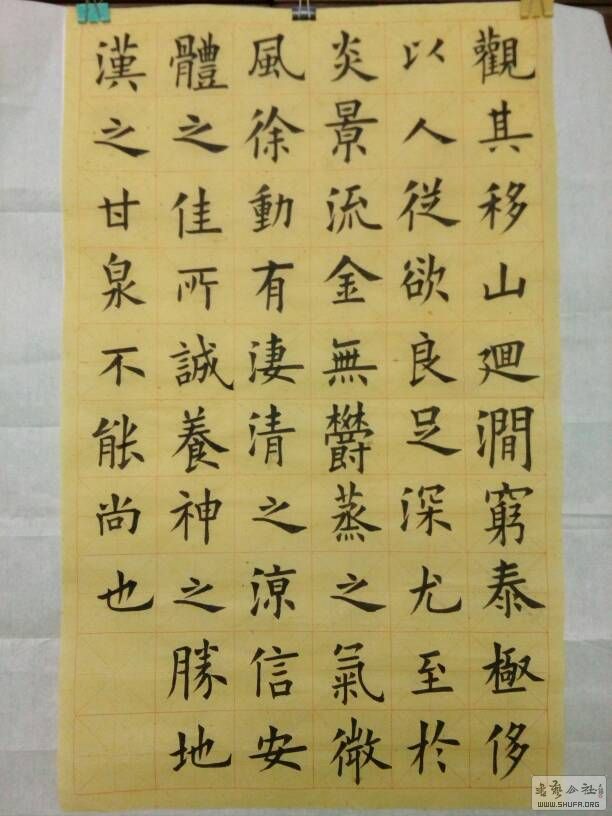 觀其移山廻澗窮泰極侈
以人從欲良足深尤至於
炎景流金無欝蒸之氣微
風徐動有淒清之涼信安
體之佳所誠養神之勝地
漢之甘泉不能尚也
WWW.SHUFA.ORG